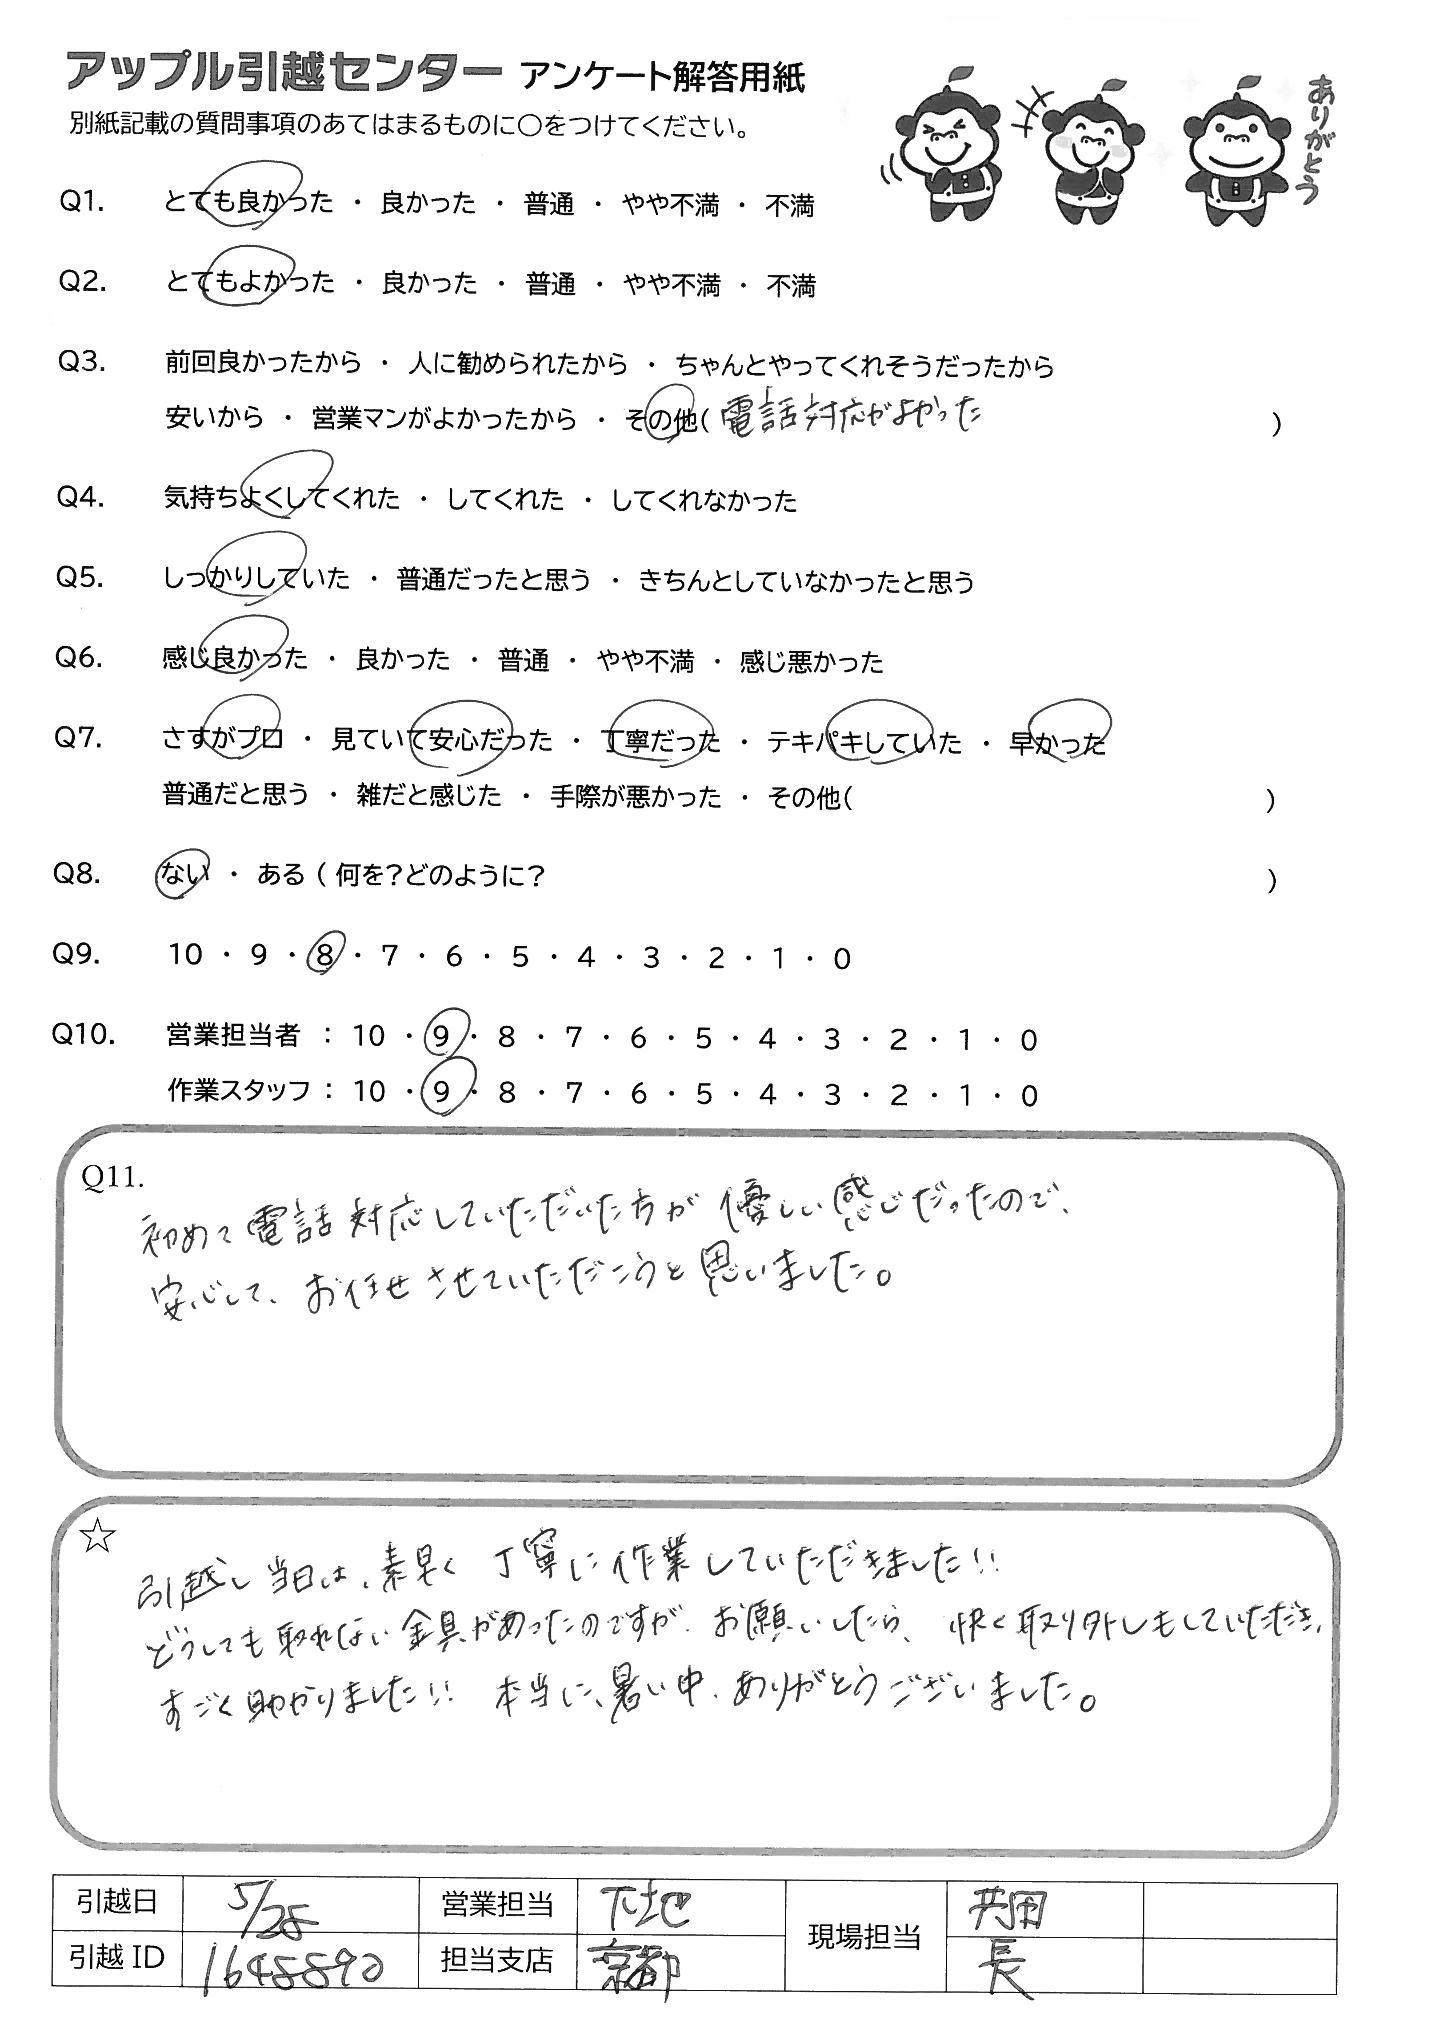 アップル引越センター アンケート解答用紙
別紙記載の質問事項のあてはまるものに○をつけてください。
ありがとう
Q1. とても良かった ・ 良かった ・ 普通 ・ やや不満 ・ 不満
Q2. とてもよかった ・ 良かった ・ 普通 ・ やや不満 ・ 不満
Q3. 前回良かったから ・ 人に勧められたから ・ ちゃんとやってくれそうだったから
安いから ・ 営業マンがよかったから ・ その他( 電話対応がよかった )
Q4. 気持ちよくしてくれた ・ してくれた ・ してくれなかった
Q5. しっかりしていた ・ 普通だったと思う ・ きちんとしていなかったと思う
Q6. 感じ良かった ・ 良かった ・ 普通 ・ やや不満 ・ 感じ悪かった
Q7. さすがプロ ・ 見ていて安心だった ・ 丁寧だった ・ テキパキしていた ・ 早かった
普通だと思う ・ 雑だと感じた ・ 手際が悪かった ・ その他( )
Q8. ない ・ ある ( 何を?どのように? )
Q9. 10 ・ 9 ・ 8 ・ 7 ・ 6 ・ 5 ・ 4 ・ 3 ・ 2 ・ 1 ・ 0
Q10. 営業担当者 : 10 ・ 9 ・ 8 ・ 7 ・ 6 ・ 5 ・ 4 ・ 3 ・ 2 ・ 1 ・ 0
作業スタッフ : 10 ・ 9 ・ 8 ・ 7 ・ 6 ・ 5 ・ 4 ・ 3 ・ 2 ・ 1 ・ 0
Q11.
初めて電話対応していただいた方が優しい感じだったので、
安心して、お任せさせていただこうと思いました。
☆
引越し当日は、素早く丁寧に作業していただきました!!
どうしても取れない金具があったのですが、お願いしたら、快く取り外しもしていただき、
すごく助かりました!! 本当に、暑い中、ありがとうございました。
引越日 5/28 営業担当 下地 現場担当 共田
引越ID 1648890 担当支店 京都 長